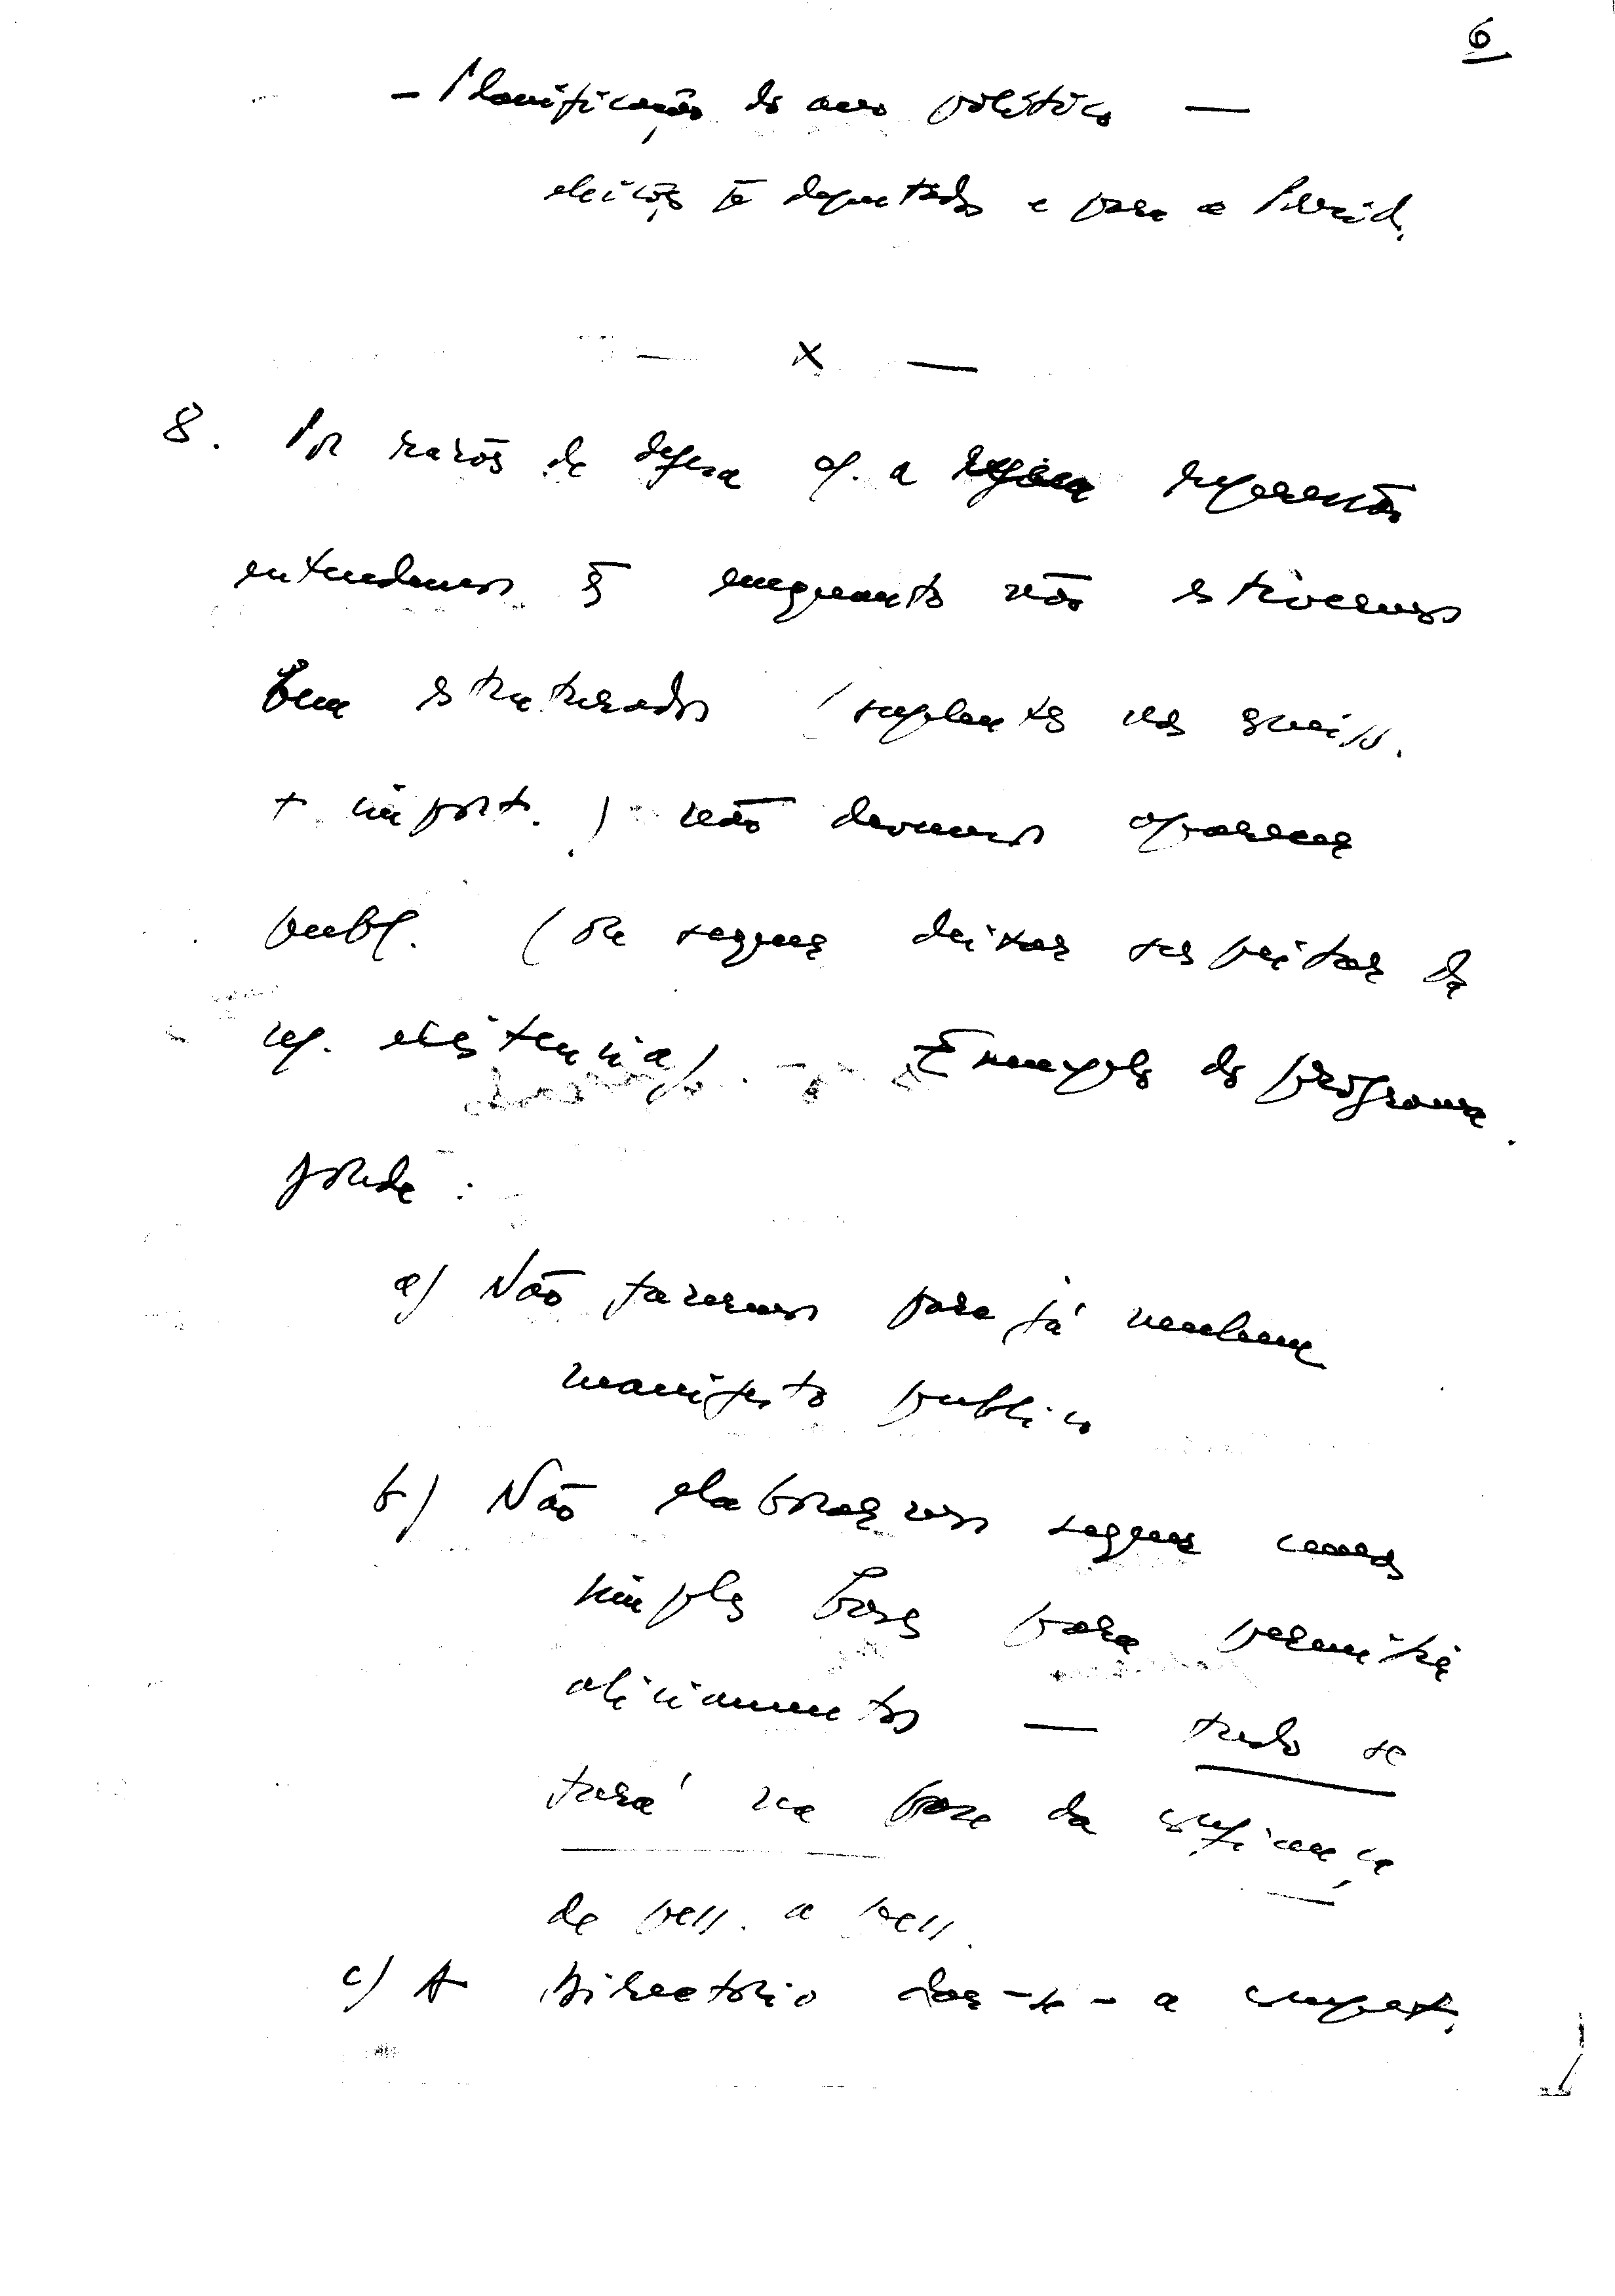 6
- Planificação do ano político —
eleições pª deputados e para a Presid.
— x —
8. Por razões de defesa c/. a repressão
entendemos q̃ enquanto não estivermos
bem estruturados (suplentes nas
+ import.) não devemos aparecer
publ. (ou sequer deixar suspeitar da
n/. existência). — Exemplo do programa
:
a) Não faremos para já nenhum
manifesto publico
b) Não elaboraremos sequer umas
simples bases para permitir
aliciamentos — tudo se
fará na base da confiança
de pess. a pess.
c) A Directorio dar-se-a